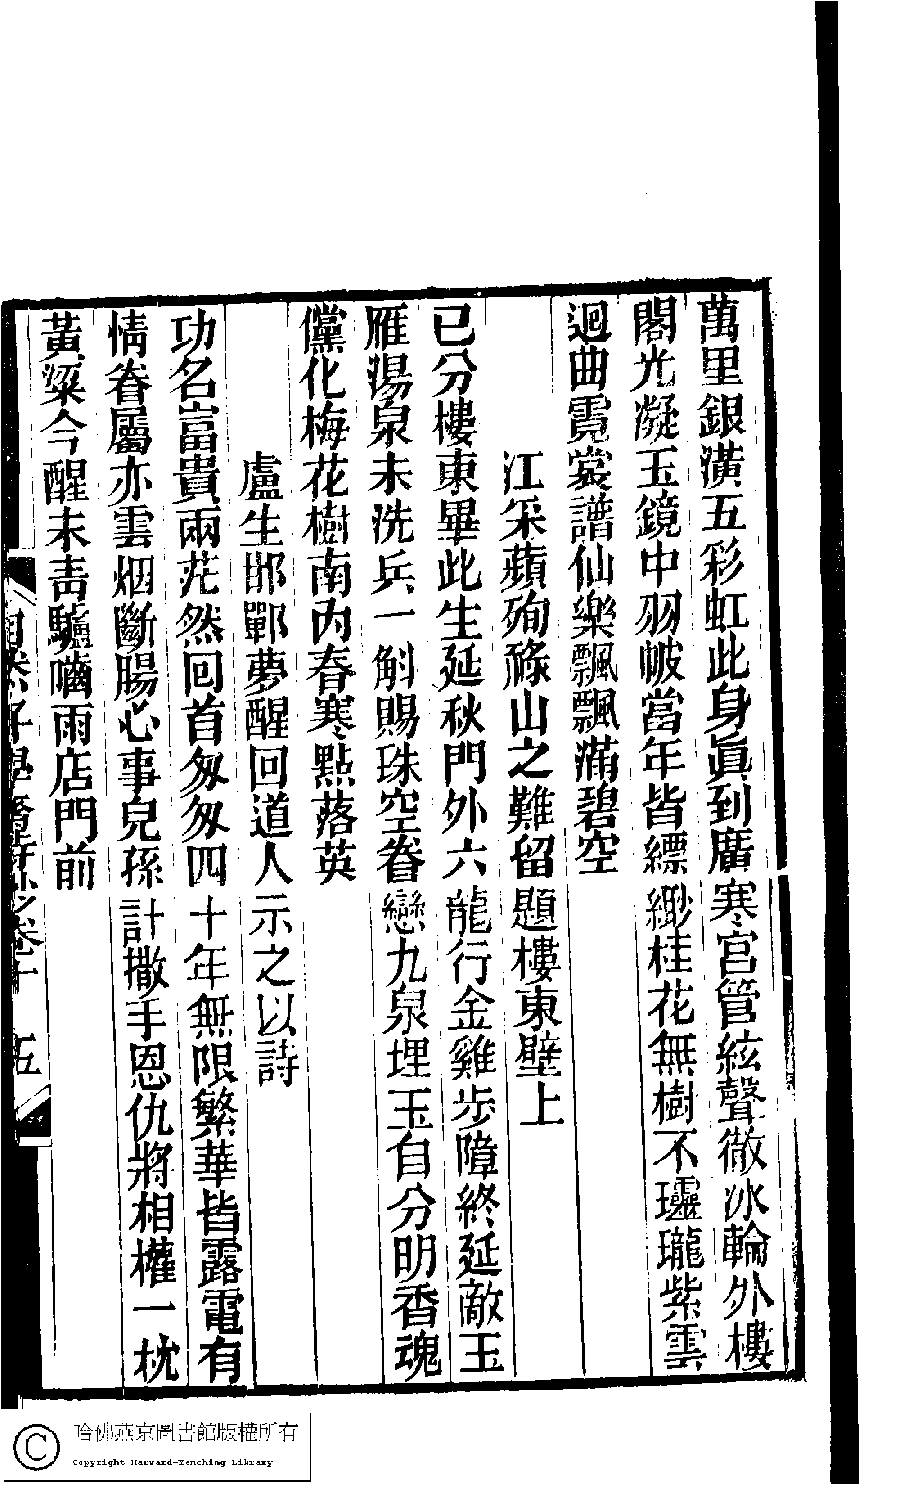 萬里銀潢五彩虹此身眞到廣寒宮管絃聲徹冰輪外樓
閣光凝玉鏡中羽帔當年皆縹緲桂花無樹不瓏瓏紫雲
迴曲霓裳譜仙樂飄飄滿碧空
江采蘋殉祿山之難留題樓東壁上
已分樓東畢此生延秋門外六龍行金雞步障終延敵玉
雁湯泉未洗兵一斛賜珠空眷戀九泉埋玉自分明香魂
儻化梅花樹南內春寒點落英
盧生邯鄲夢醒回道人示之以詩
功名富貴兩茫然回首匆匆四十年無限繁華皆露電有
情眷屬亦雲烟斷腸心事兒孫計撒手恩仇將相權一枕
黃粱今醒未靑驢嚙雨店門前
學齋 卷十 五
哈佛燕京圖書館版權所有
Copyright Harvard-Yenching Library